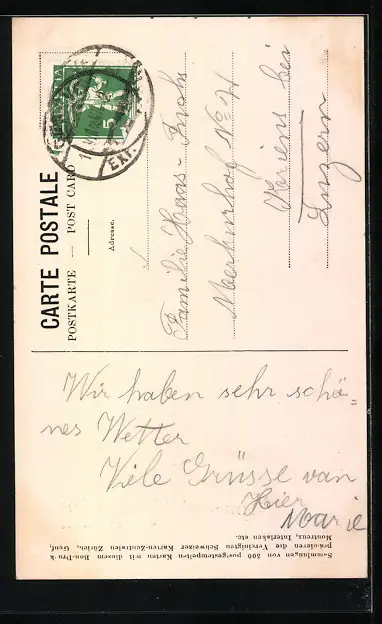 CARTE POSTALE
POSTKARTE — POST CARD
Adresse.
HELVETIA
5
EXP.
Familie Haas-Fuchs
Merkurhof No 74
Kriens bei
Luzern
Wir haben sehr schö=
nes Wetter
Viele Grüsse van
Hier
Marie
Sammlungen von 500 postgestempelten Karten mit diesem Bon-Druck
prämieren die Vereinigten Schweizer Karten-Zentralen Zürich, Genf,
Montreux, Interlaken etc.